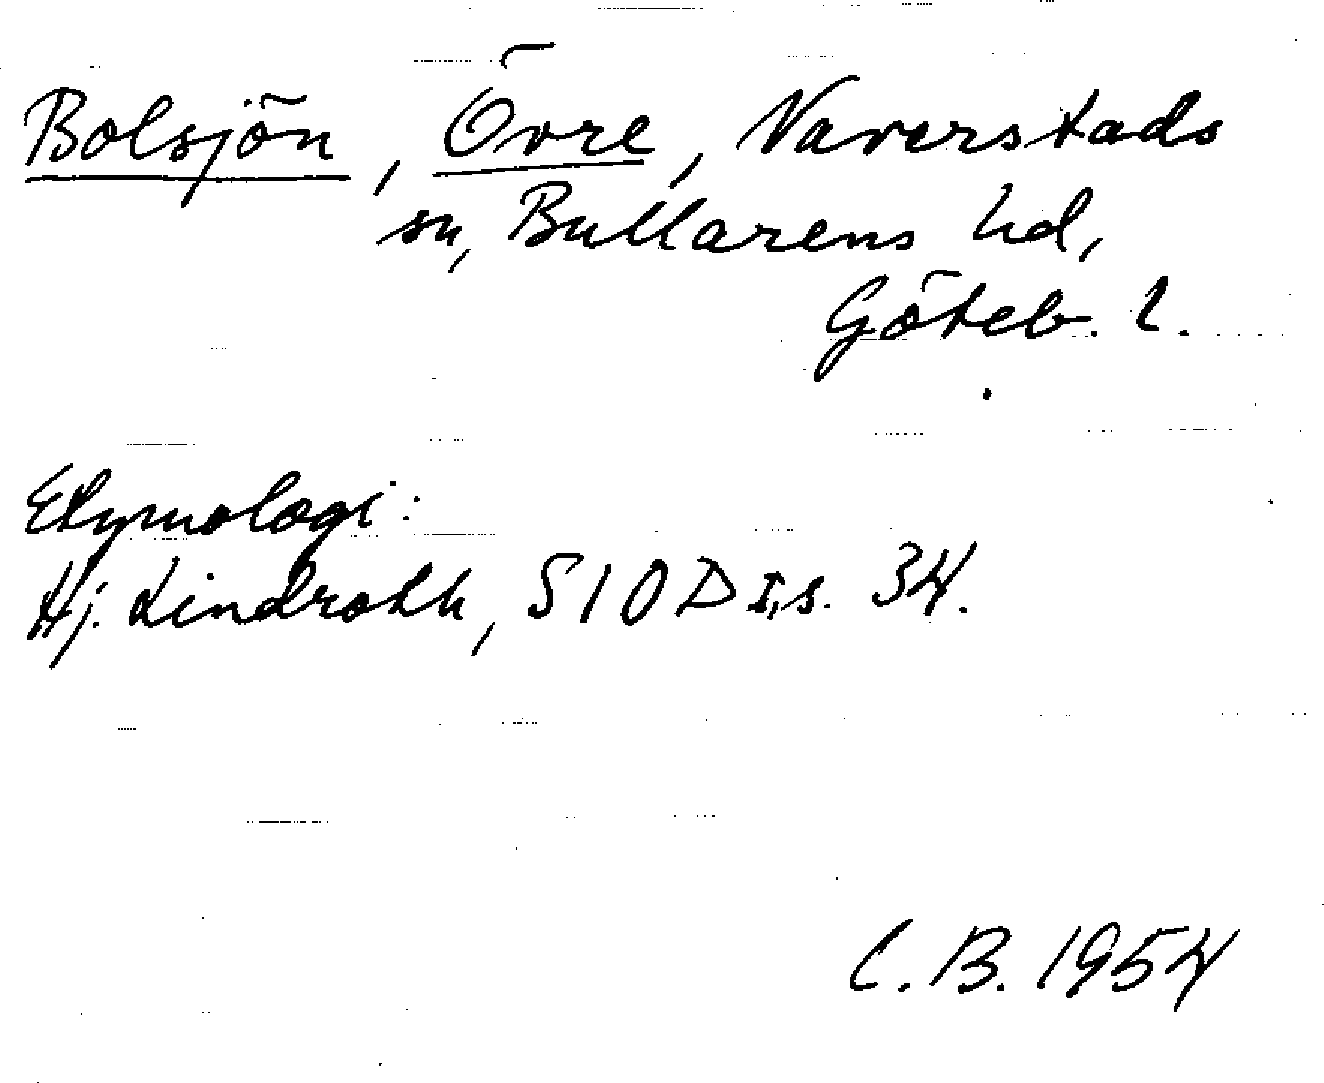 Bolsjön, Övre, Naverstads
sn, Bullarens hd,
Göteb. l.
Etymologi:
Hj. Lindroth, SIOD I, s. 34.
C. B. 1954